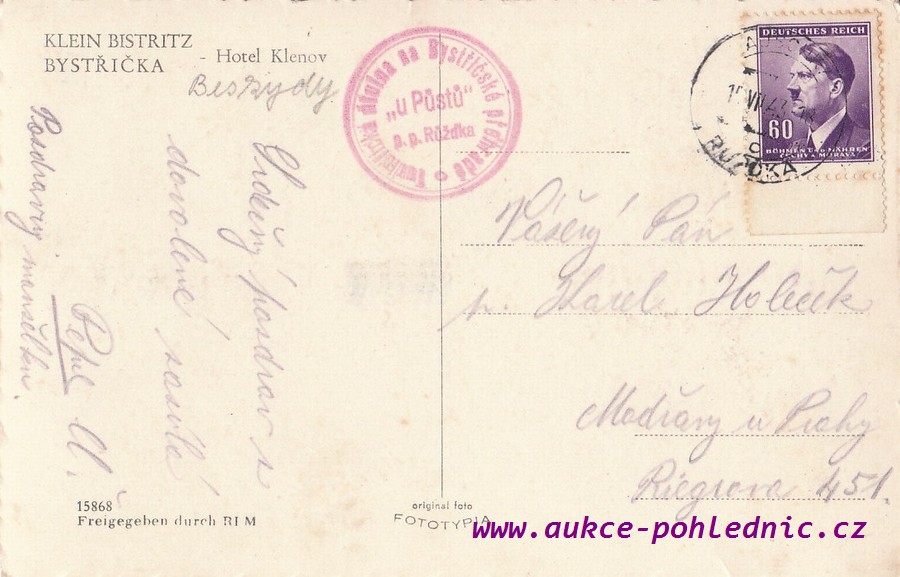 KLEIN BISTRITZ
BYSTŘIČKA
- Hotel Klenov
Beskydy
Turistická útulna na Bystřičské přehradě
"u Půstů"
p. p. Růžďka
DEUTSCHES REICH
60
BÖHMEN UND MÄHREN
ČECHY A MORAVA
Srdečný pozdrav z
dovolené zasílá
Pepul
Pozdravuj manželku.
Vážený Pán
p. Karel Holečík
Modřany u Prahy
Riegrova 451.
15868
Freigegeben durch RLM
original foto
FOTOTYPIA
www.aukce-pohlednic.cz